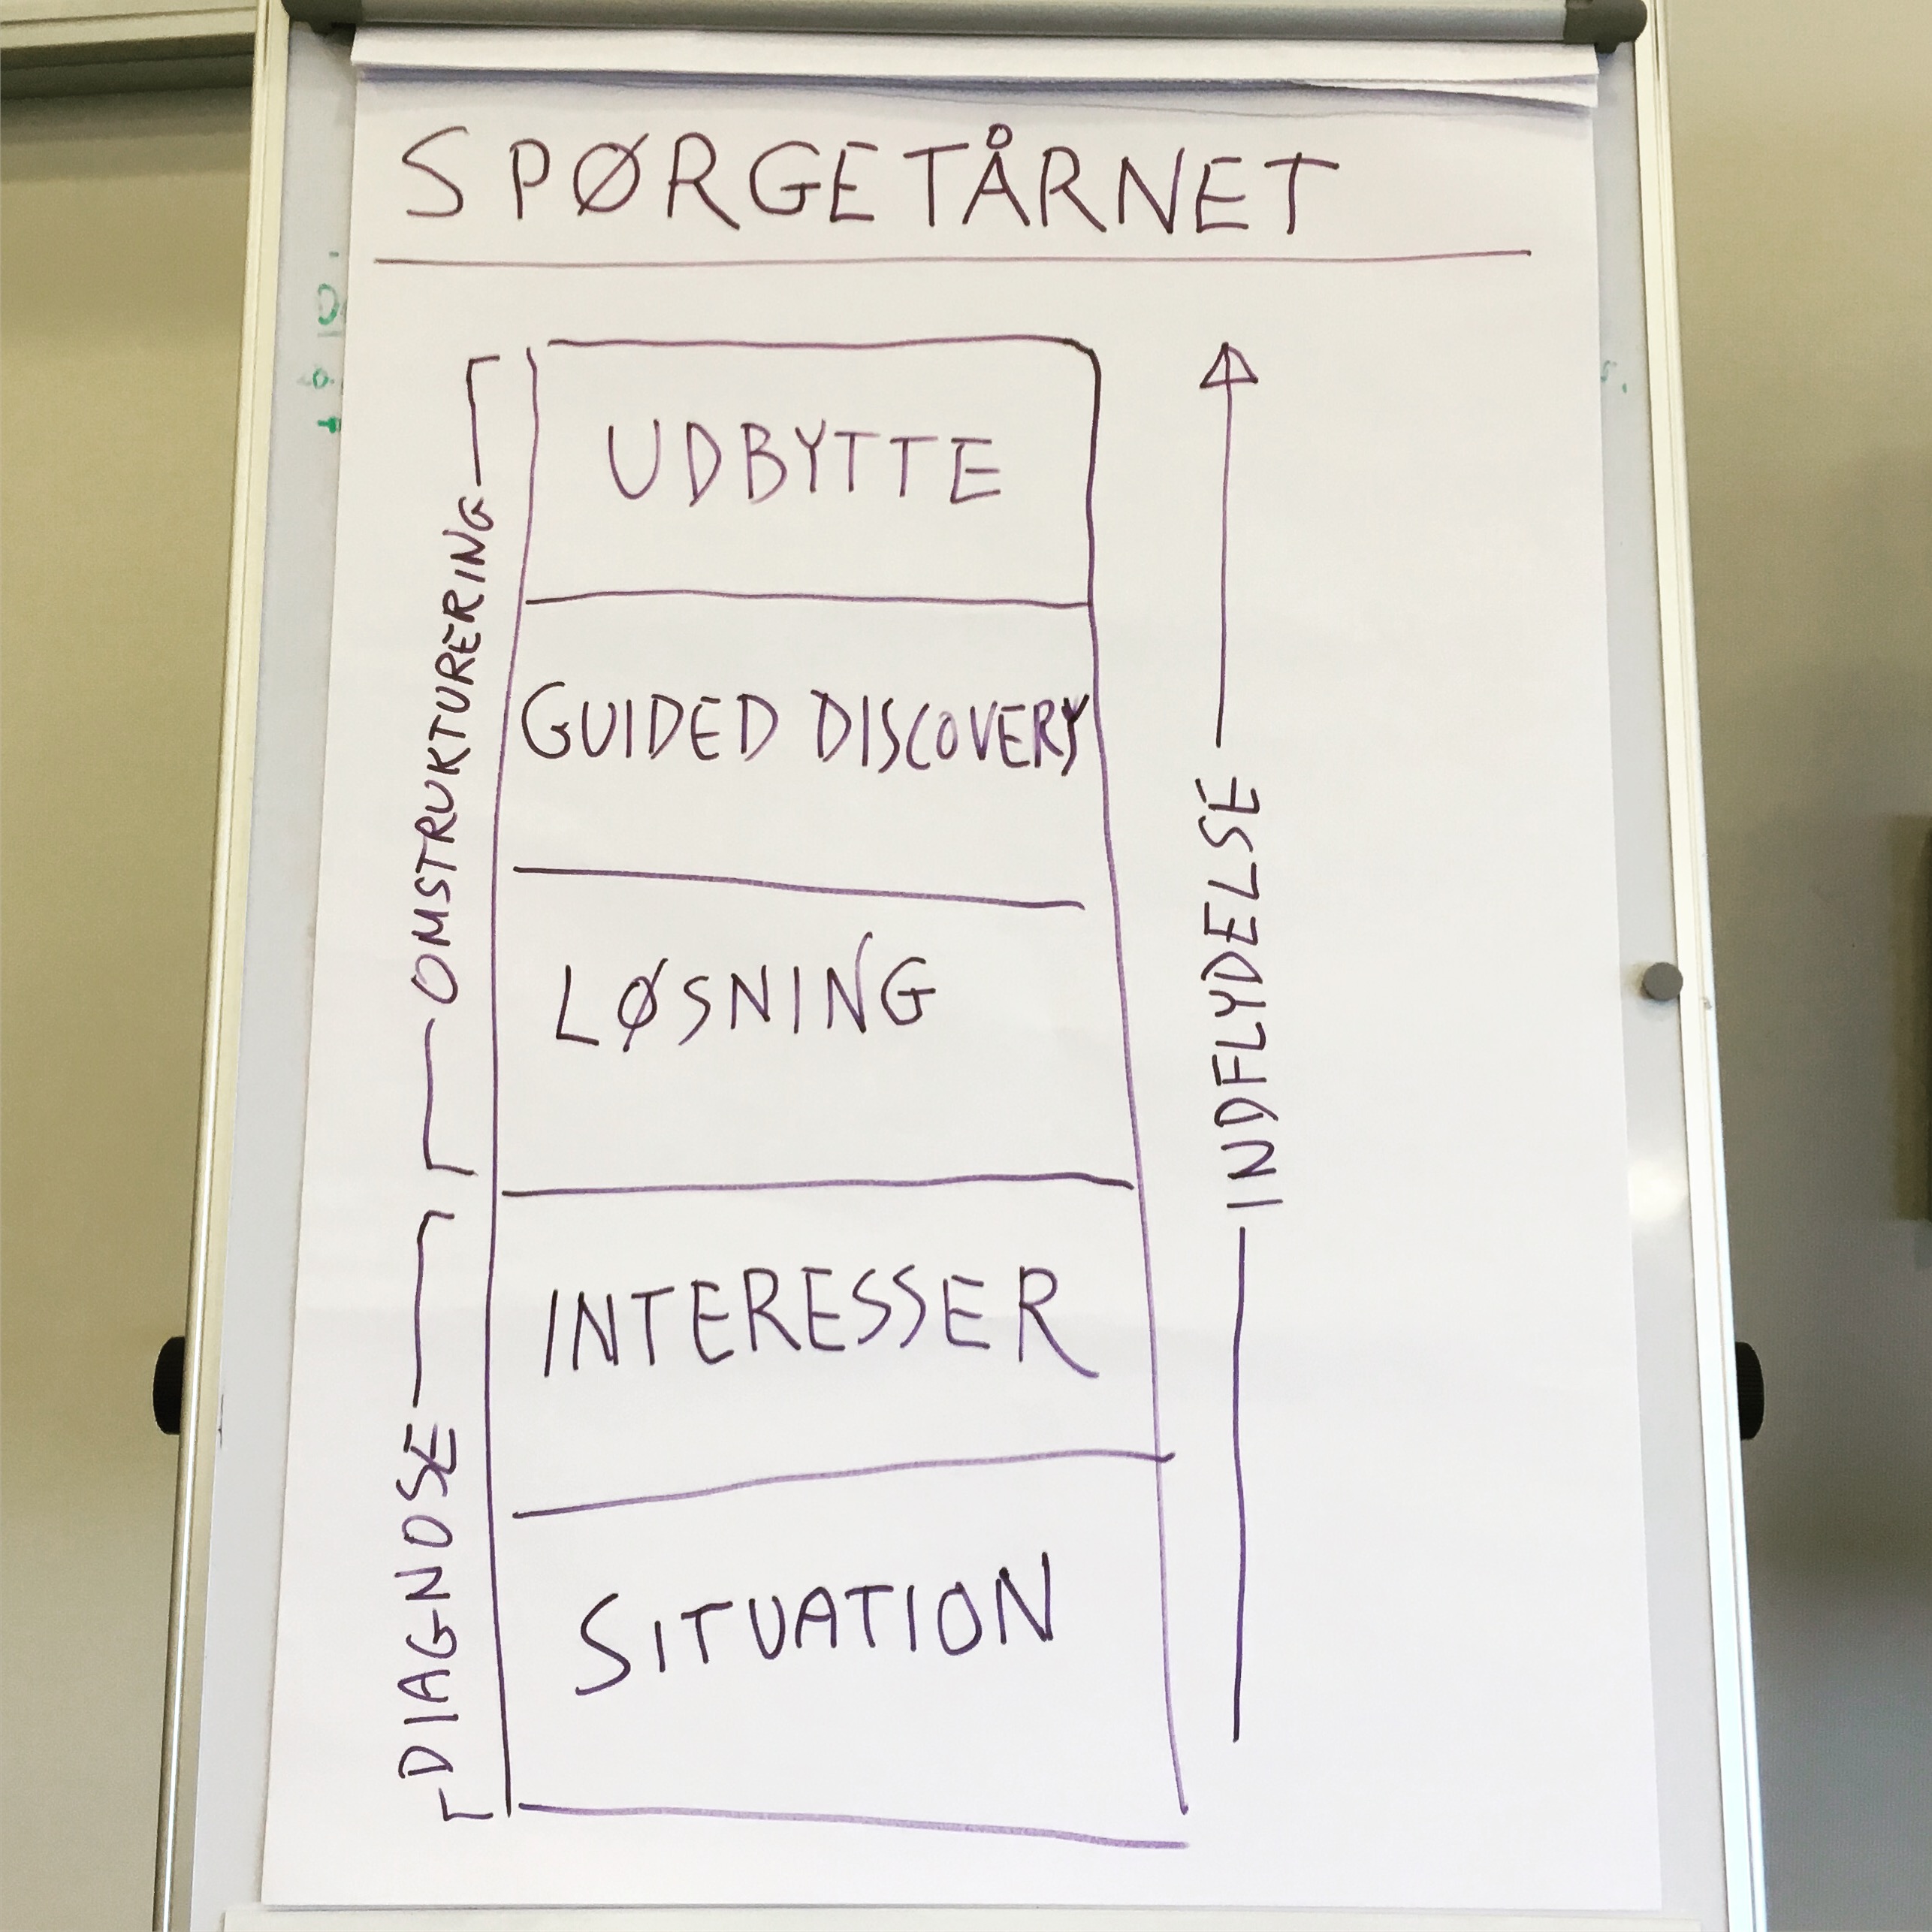 SPØRGETÅRNET
UDBYTTE
GUIDED DISCOVERY
LØSNING
INTERESSER
SITUATION
OMSTRUKTURERING
DIAGNOSE
INDFLYDELSE